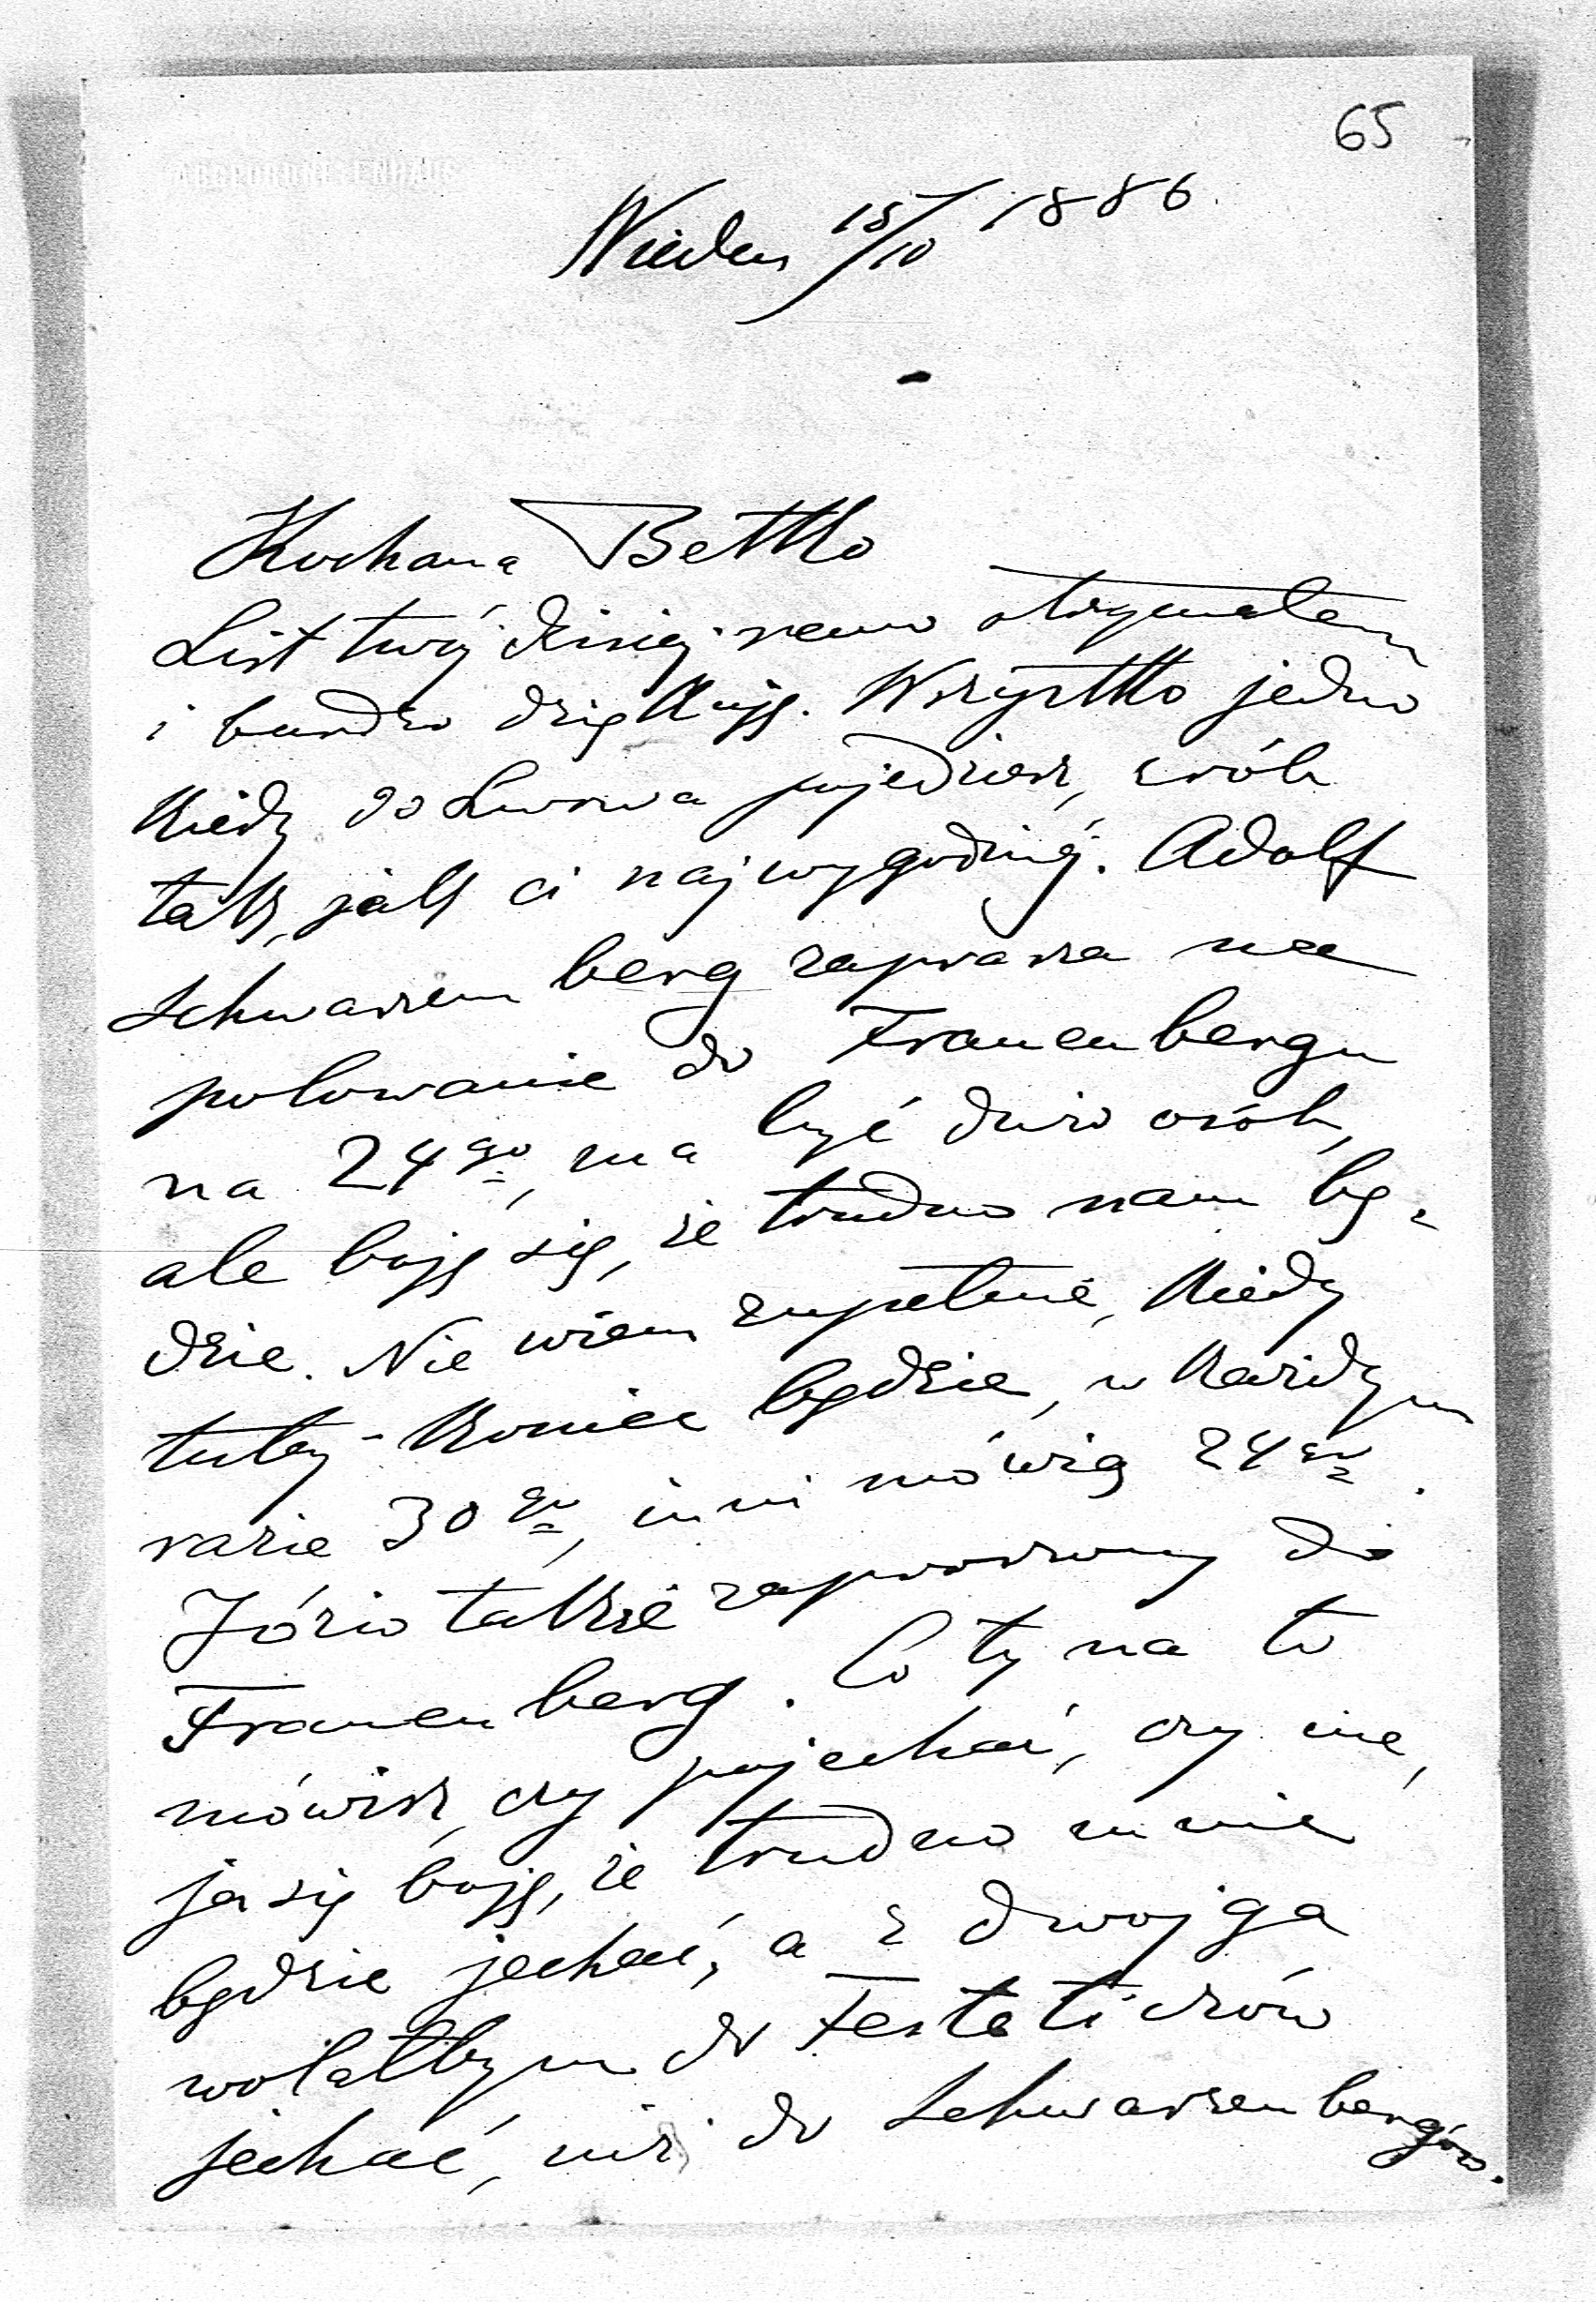 65
ABGEORDNETENHAUS
Wiedeń 15/10 1886.
Kochana Bettko
List twój dzisiej. rano otrzymałem
i bardzo dziękuję. Wszystko jedno
kiedy do Lwowa pojedziesz, zrób
tak, jak ci najwygodniéj. Adolf
Schwarzenberg zaprasza na
polowanie do Frauenbergu
na 24go, ma być dużo osób,
ale boję się, że trudno nam bę-
dzie. Nie wiem zupełnie, kiedy
tutej. koniec będzie, w każdym
razie 30go, inni mówią 24go.
Józio także zaproszony do
Frauenberg. Co ty na to
mówisz, czy pojechać, czy nie,
ja się boję, że trudno mnie
będzie jechać, a z dwojga
wolałbym do Festeticzów
jechać, niż do Schwarzenbergów.